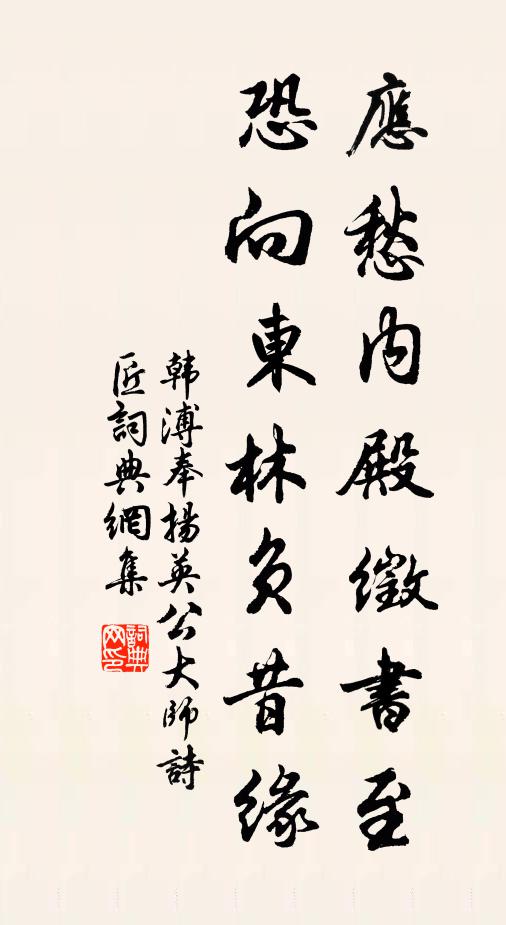 應愁内殿徵書至
恐向東林負昔緣
韩溥奉揚英公大師詩
匠詞典網集
詞典網印